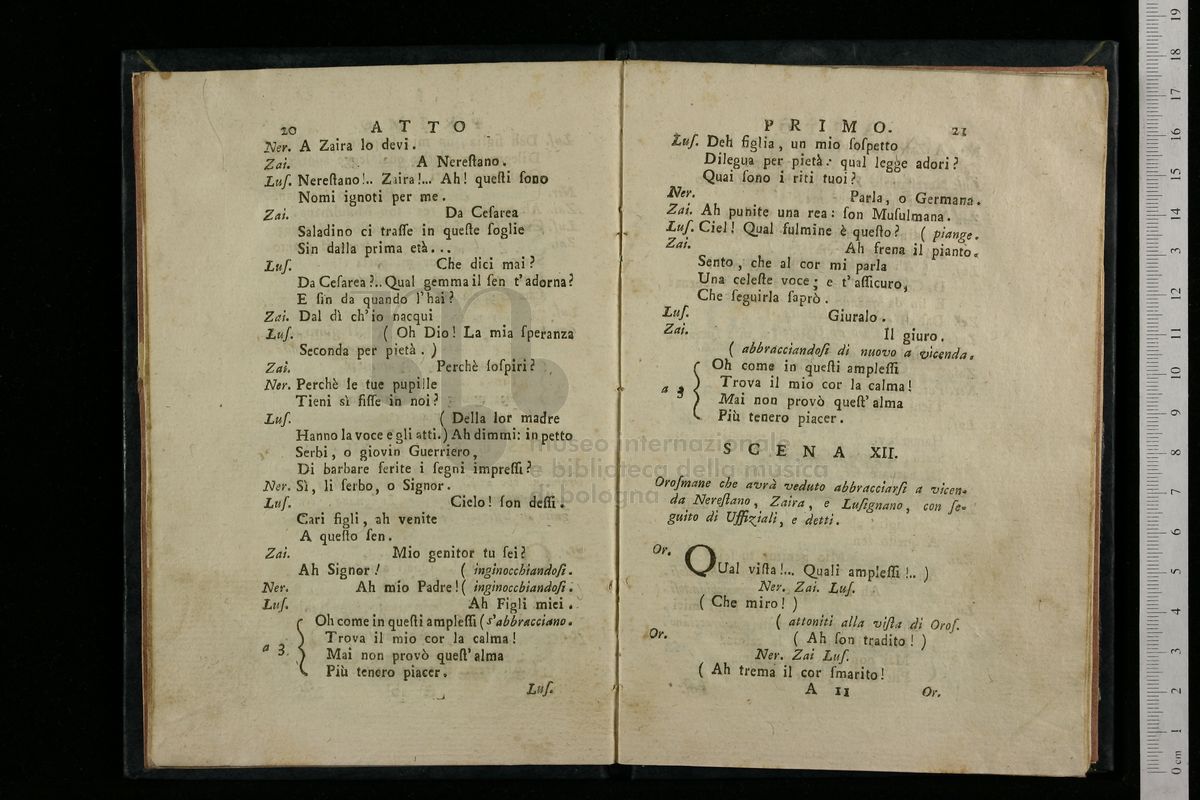 20 ATTO
Ner. A Zaira lo devi.
Zai. A Nereſtano.
Luſ. Nereſtano!.. Zaira!... Ah! queſti ſono
Nomi ignoti per me.
Zai. Da Ceſarea
Saladino ci traſſe in queſte ſoglie
Sin dalla prima età...
Luſ. Che dici mai?
Da Ceſarea?.. Qual gemma il ſen t'adorna?
E ſin da quando l'hai?
Zai. Dal dì ch'io nacqui
Luſ. ( Oh Dio! La mia ſperanza
Seconda per pietà. )
Zai. Perchè ſoſpiri?
Ner. Perchè le tue pupille
Tieni sì fiſſe in noi?
Luſ. ( Della lor madre
Hanno la voce e gli atti.) Ah dimmi: in petto
Serbi, o giovin Guerriero,
Di barbare ferite i ſegni impreſſi?
Ner. Sì, li ſerbo, o Signor.
Luſ. Cielo! ſon deſſi.
Cari figli, ah venite
A queſto ſen.
Zai. Mio genitor tu ſei?
Ah Signor! ( inginocchiandoſi.
Ner. Ah mio Padre! ( inginocchiandoſi.
Luſ. Ah Figli miei.
Oh come in queſti ampleſſi (s'abbracciano.
Trova il mio cor la calma!
a 3. Mai non provò queſt'alma
Più tenero piacer.
Luſ.
PRIMO. 21
Luſ. Deh figlia, un mio ſoſpetto
Dilegua per pietà: qual legge adori?
Quai ſono i riti tuoi?
Ner. Parla, o Germana.
Zai. Ah punite una rea: ſon Muſulmana.
Luſ. Ciel! Qual fulmine è queſto? ( piange.
Zai. Ah frena il pianto.
Sento, che al cor mi parla
Una celeſte voce; e t'aſſicuro,
Che ſeguirla ſaprò.
Luſ. Giuralo.
Zai. Il giuro.
( abbracciandoſi di nuovo a vicenda.
Oh come in queſti ampleſſi
Trova il mio cor la calma!
a 3 Mai non provò queſt'alma
Più tenero piacer.
SCENA XII.
Oroſmane che avrà veduto abbracciarſi a vicen-
da Nereſtano, Zaira, e Luſignano, con ſe-
guito di Uffiziali, e detti.
Or. QUal viſta!... Quali ampleſſi!.. )
Ner. Zai. Luſ.
( Che miro! )
( attoniti alla viſta di Oroſ.
Or. ( Ah ſon tradito! )
Ner. Zai Luſ.
( Ah trema il cor ſmarito!
A 11 Or.
museo internazionale
e biblioteca della musica
di bologna
0 cm 1 2 3 4 5 6 7 8 9 10 11 12 13 14 15 16 17 18 19